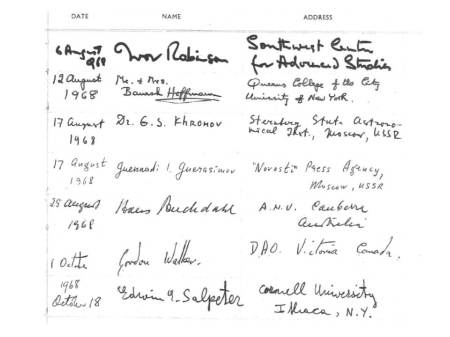 DATE NAME ADDRESS
6 August 1968 Ivor Robinson Southwest Center for Advanced Studies
12 August 1968 Mr. & Mrs. Banesh Hoffmann Queens College of the City University of New York.
17 August 1968 Dr. G. S. Khromov Sternberg State Astronomical Inst., Moscow, USSR
17 August 1968 Guennadi I. Guerasimov "Novosti" Press Agency, Moscow, USSR
25 August 1968 Hans Buchdahl A.N.U. Canberra Australia
1 Octobe 1968 Gordon Walker. D.A.O. Victoria Canada.
October 18 Edwin E. Salpeter Cornell University Ithaca, N.Y.